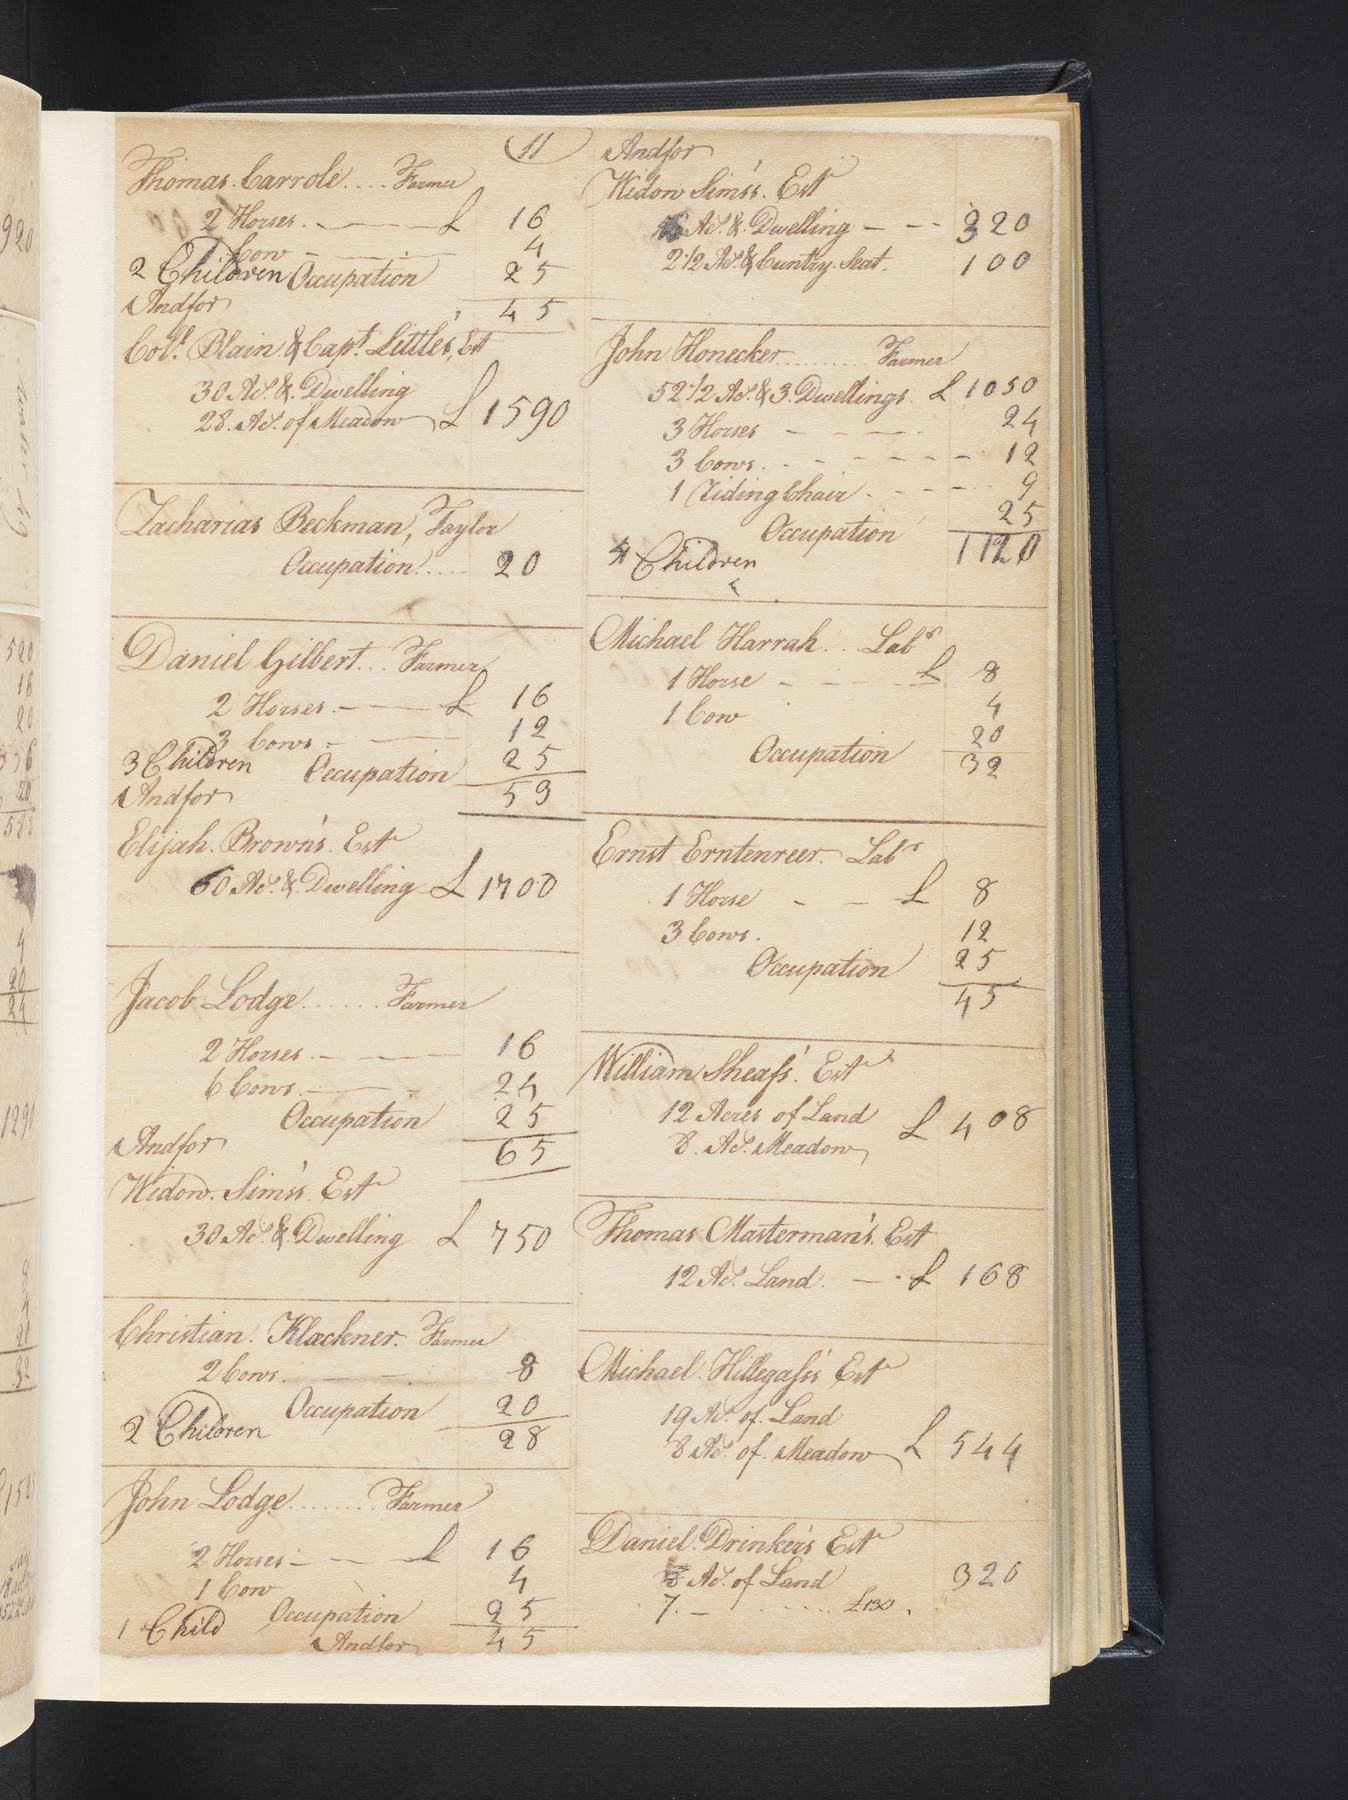 11
Thomas Carrole .... Farmer
2 Horses. — £ 16
Cow — 4
2 Children Occupation 25
Andfor 45
Coll. Blain & Capt. Little's, Est
30 As. & Dwelling
28. As. of Meadow £ 1590
Zacharias Beckman, Taylor
Occupation .... 20
Daniel Gilbert ... Farmer
2 Horses. — £ 16
3 Cows. — 12
3 Children Occupation 25
Andfor 53
Elijah. Brown's. Est
60 As. & Dwelling £ 1700
Jacob Lodge ...... Farmer
2 Horses. — 16
6 Cows. — 24
Occupation 25
Andfor 65
Widow. Sims's. Est
30 As. & Dwelling £ 750
Christian. Klackner. Farmer
2 Cows. — 8
Occupation 20
2 Children 28
John Lodge ....... Farmer
2 Horses — £ 16
1 Cow 4
1 Child Occupation 25
Andfor 45
Andfor
Widow Sims's. Est
As. & Dwelling — 320
2 1/2 As. & Cuntry. Seat. 100
John Honecker ......... Farmer
52 1/2 As. & 3. Dwellings. £ 1050
3 Horses — 24
3 Cows. — 12
1 Riding Chair — 9
Occupation 25
4 Children 1120
Michael Harrah ... Labr
1 Horse — £ 8
1 Cow 4
Occupation 20
32
Ernst Erntenreer. Labr
1 Horse — £ 8
3 Cows. 12
Occupation 25
45
William Sheaf's'. Est
12 Acres of Land
8. As. Meadow £ 408
Thomas Masterman's. Est
12 As. Land. — £ 168
Michael. Hillegass's Est
19 As. of. Land
8 As. of. Meadow £ 544
Daniel. Drinker's Est
As. of Land 326
7. — ..... £130.